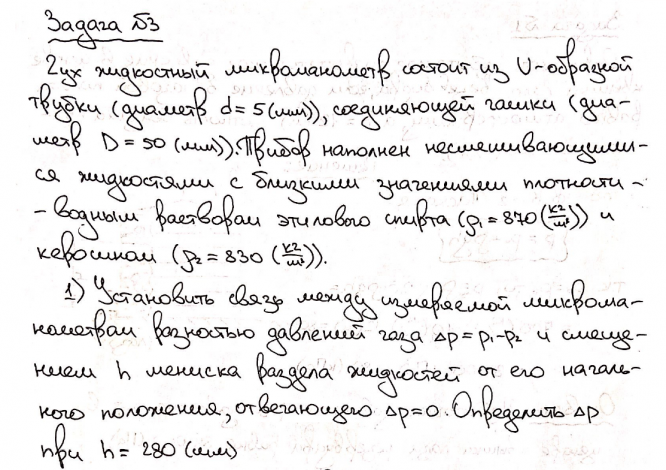 Задача №3
2ух жидкостный микроманометр состоит из U-образной
трубки (диаметр d = 5 (мм)), соединяющей чашки (диа-
метр D = 50 (мм)). Прибор наполнен несмешивающими-
ся жидкостями с близкими значениями плотности -
- водным раствором этилового спирта (ρ₁ = 870 (кг/м³)) и
керосином (ρ₂ = 830 (кг/м³)).
1) Установить связь между измеряемой микрома-
нометром разностью давлений газа Δp = p₁-p₂ и смеще-
нием h мениска раздела жидкостей от его началь-
ного положения, отвечающего Δp=0. Определить Δp
при h = 280 (мм)